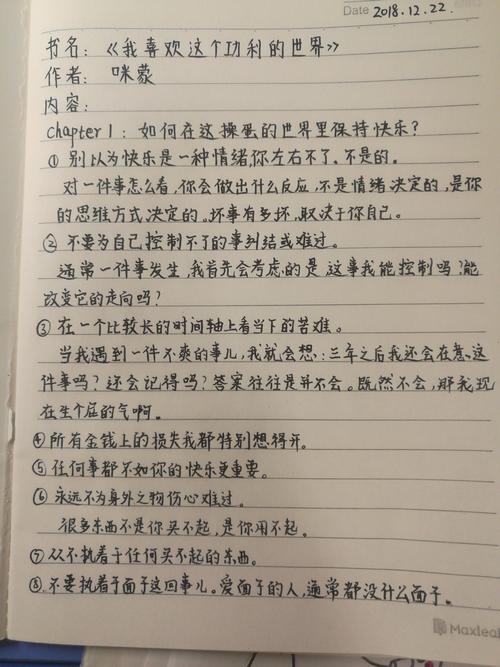 Date 2018.12.22.
书名：《我喜欢这个功利的世界》
作者：咪蒙
内容：
chapter 1：如何在这操蛋的世界里保持快乐？
① 别以为快乐是一种情绪,你左右不了。不是的。
对一件事怎么看,你会做出什么反应,不是情绪决定的,是你
的思维方式决定的。坏事有多坏,取决于你自己。
② 不要为自己控制不了的事纠结或难过。
通常一件事发生,我首先会考虑的是,这事我能控制吗?能
改变它的走向吗?
③ 在一个比较长的时间轴上看当下的苦难。
当我遇到一件不爽的事儿,我就会想:三年之后我还会在意这
件事吗?还会记得吗?答案往往是并不会。既然不会,那我现
在生个屁的气啊。
④ 所有金钱上的损失我都特别想得开。
⑤ 任何事都不如你的快乐更重要。
⑥ 永远不为身外之物伤心难过。
很多东西不是你买不起,是你用不起。
⑦ 从不执着于任何买不起的东西。
⑧ 不要执着于面子这回事儿。爱面子的人,通常都没什么面子。
Maxleaf